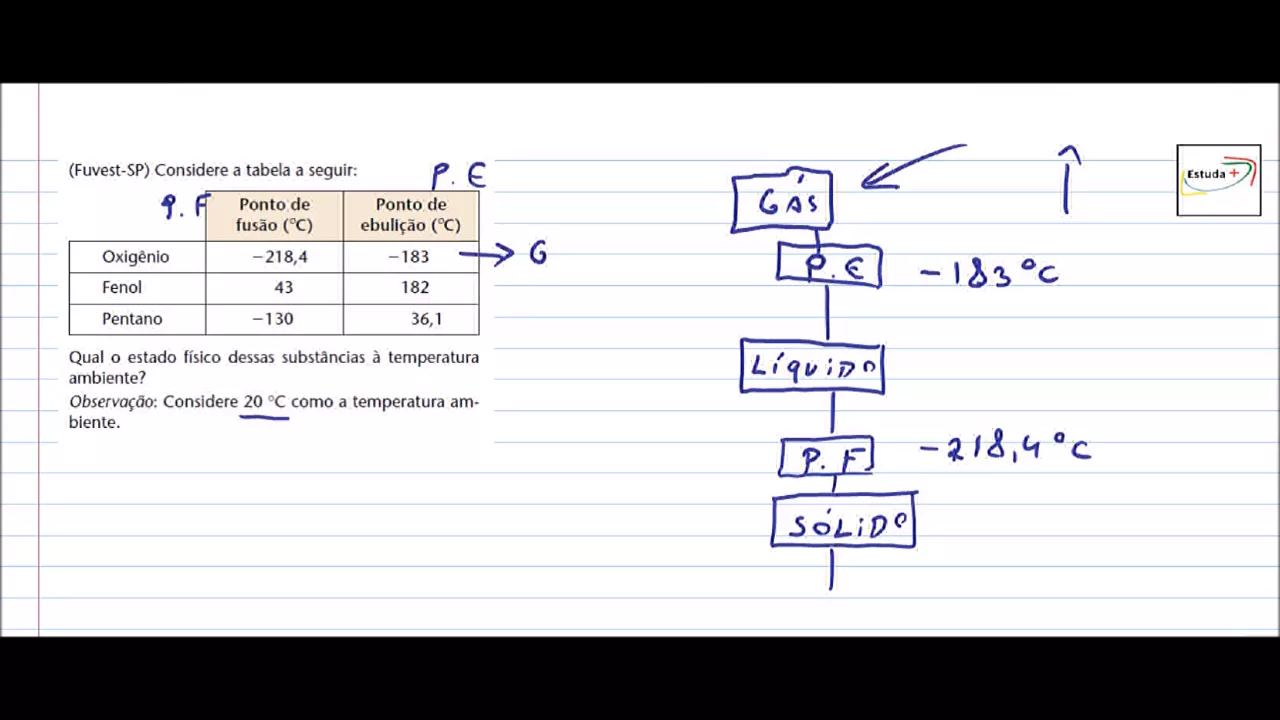 (Fuvest-SP) Considere a tabela a seguir:
P. E
P. F
Ponto de fusão (°C) Ponto de ebulição (°C)
Oxigênio −218,4 −183 → G
Fenol 43 182
Pentano −130 36,1
Qual o estado físico dessas substâncias à temperatura
ambiente?
Observação: Considere 20 °C como a temperatura am-
biente.
GÁS
P. E −183°C
LÍQUIDO
P. F −218,4°C
SÓLIDO
Estuda +